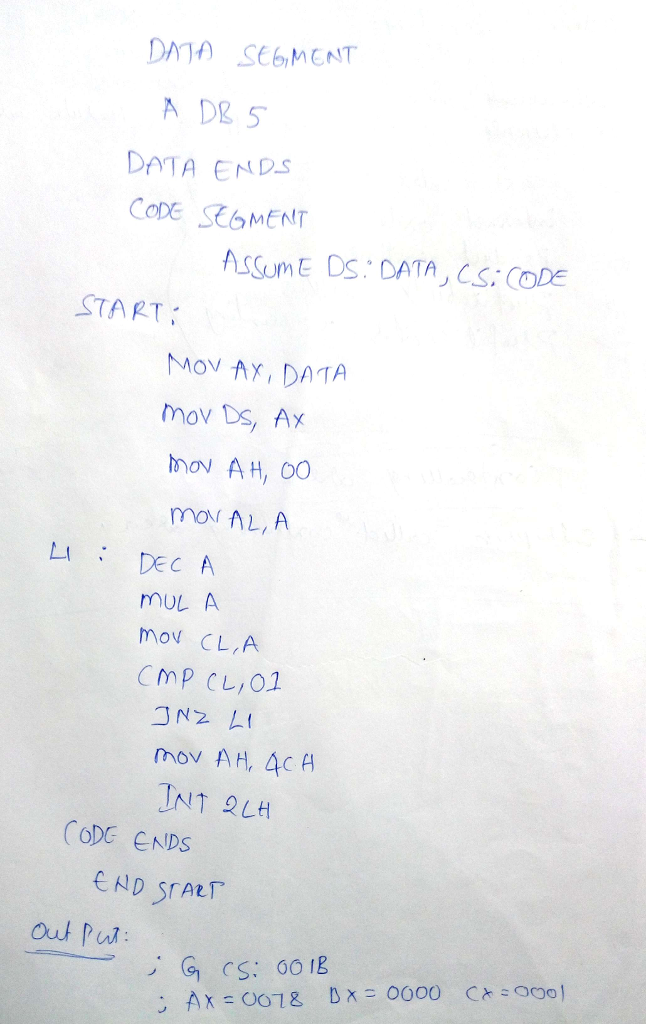 DATA SEGMENT
A DB 5
DATA ENDS
CODE SEGMENT
ASSUME DS: DATA, CS: CODE
START:
MOV AX, DATA
MOV DS, AX
MOV AH, 00
MOV AL, A
L1 : DEC A
MUL A
MOV CL, A
CMP CL, 01
JNZ L1
MOV AH, 4CH
INT 21H
CODE ENDS
END START
Out Put:
; G CS: 001B
; AX = 0078 BX = 0000 CX = 0001